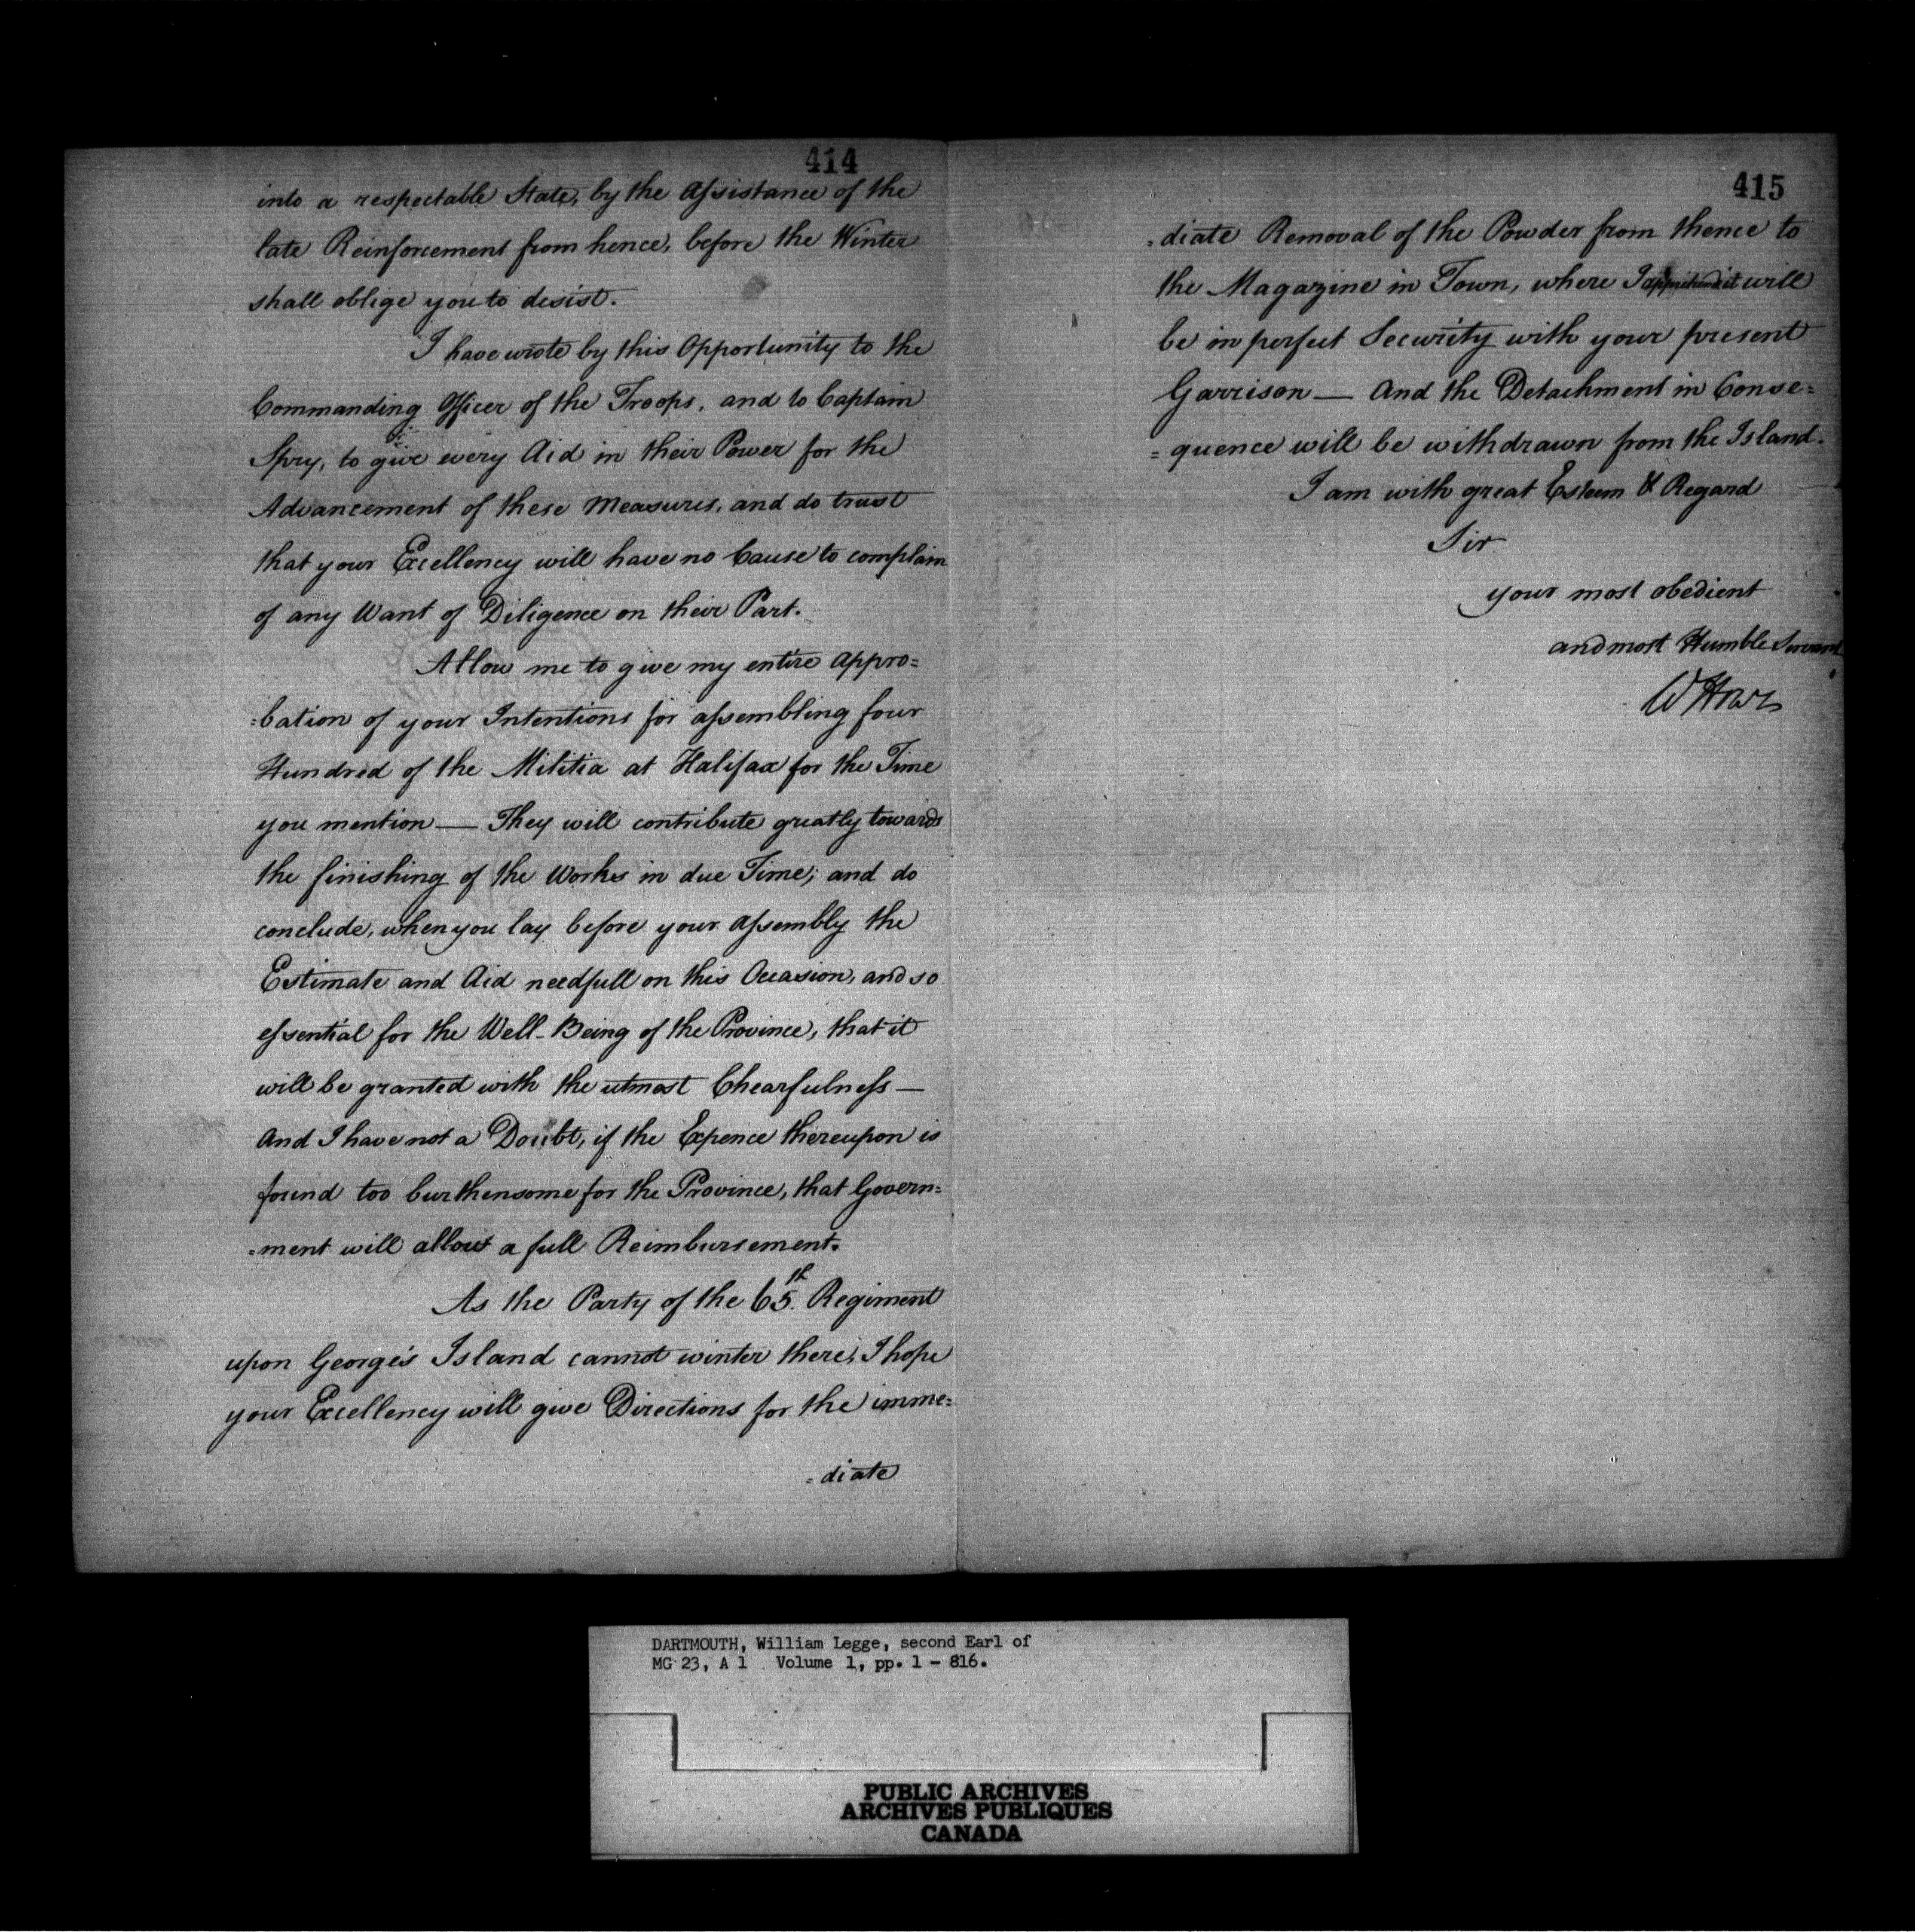 414
into a respectable State, by the Assistance of the
late Reinforcement from hence, before the Winter
shall oblige you to desist.
I have wrote by this Opportunity to the
Commanding Officer of the Troops, and to Captain
Spry, to give every Aid in their Power for the
Advancement of these Measures, and do trust
that your Excellency will have no Cause to complain
of any Want of Diligence on their Part.
Allow me to give my entire Appro=
=bation of your Intentions for assembling four
Hundred of the Militia at Halifax for the Time
you mention — They will contribute greatly towards
the finishing of the Works in due Time; and do
conclude, when you lay before your Assembly the
Estimate and Aid needfull on this Occasion, and so
essential for the Well-Being of the Province, that it
will be granted with the utmost Chearfulness —
And I have not a Doubt, if the Expence thereupon is
found too burthensome for the Province, that Govern=
=ment will allow a full Reimbursement.
As the Party of the 65th. Regiment
upon George's Island cannot winter there, I hope
your Excellency will give Directions for the imme=
=diate
415
=diate Removal of the Powder from thence to
the Magazine in Town, where I apprehend it will
be in perfect Security with your present
Garrison — And the Detachment in Conse=
=quence will be withdrawn from the Island.
I am with great Esteem & Regard
Sir
your most obedient
and most Humble Servant
W Howe
DARTMOUTH, William Legge, second Earl of
MG 23, A 1 Volume 1, pp. 1 - 816.
PUBLIC ARCHIVES
ARCHIVES PUBLIQUES
CANADA